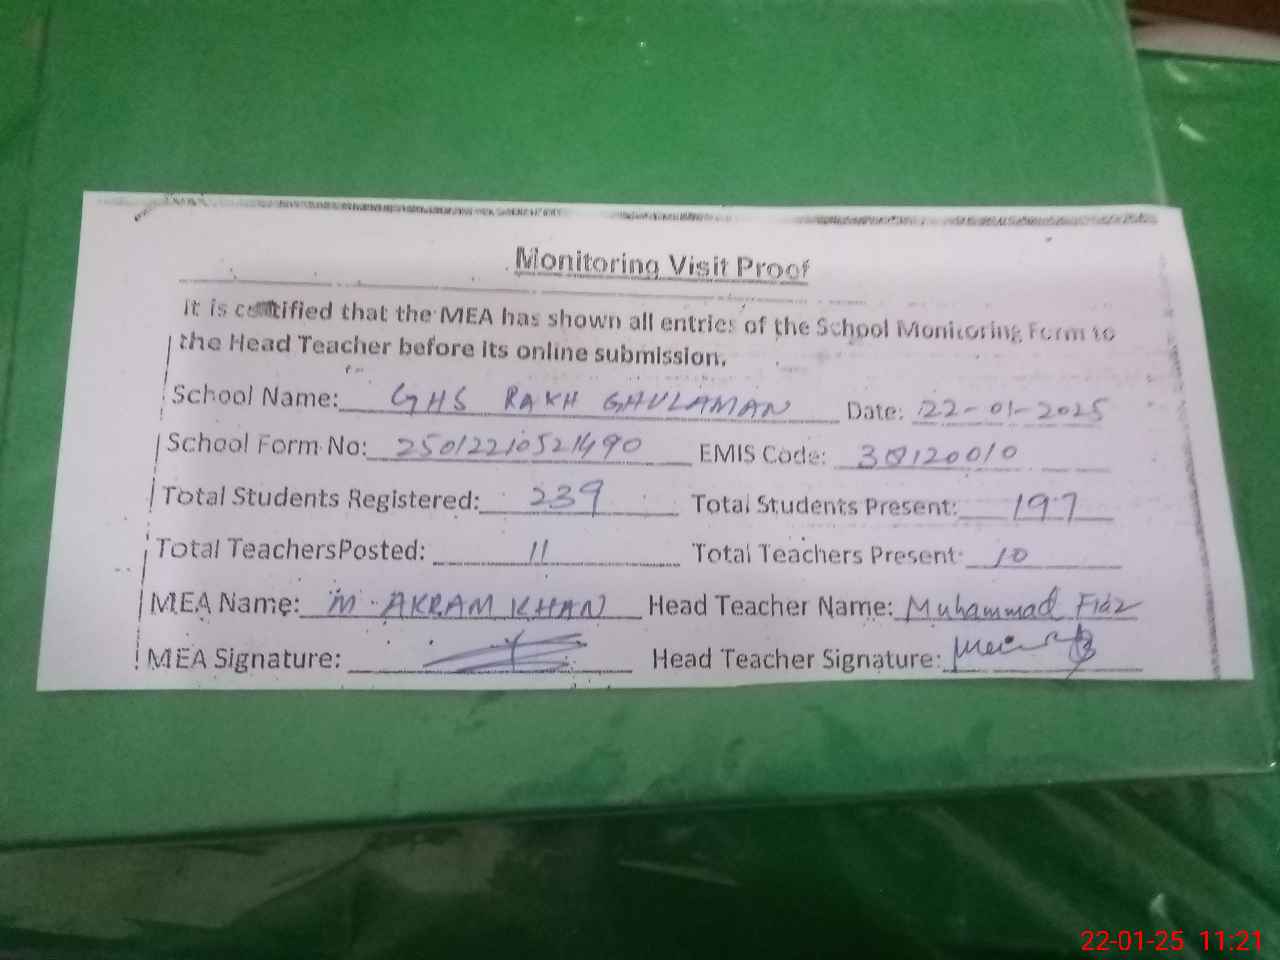 Monitoring Visit Proof
It is certified that the MEA has shown all entries of the School Monitoring Form to
the Head Teacher before its online submission.
School Name: GHS RAKH GHULAMAN Date: 22-01-2025
School Form No: 25012210521490 EMIS Code: 30120010
Total Students Registered: 239 Total Students Present: 197
Total TeachersPosted: 11 Total Teachers Present: 10
MEA Name: M. AKRAM KHAN Head Teacher Name: Muhammad Fiaz
MEA Signature: Head Teacher Signature:
22-01-25 11:21